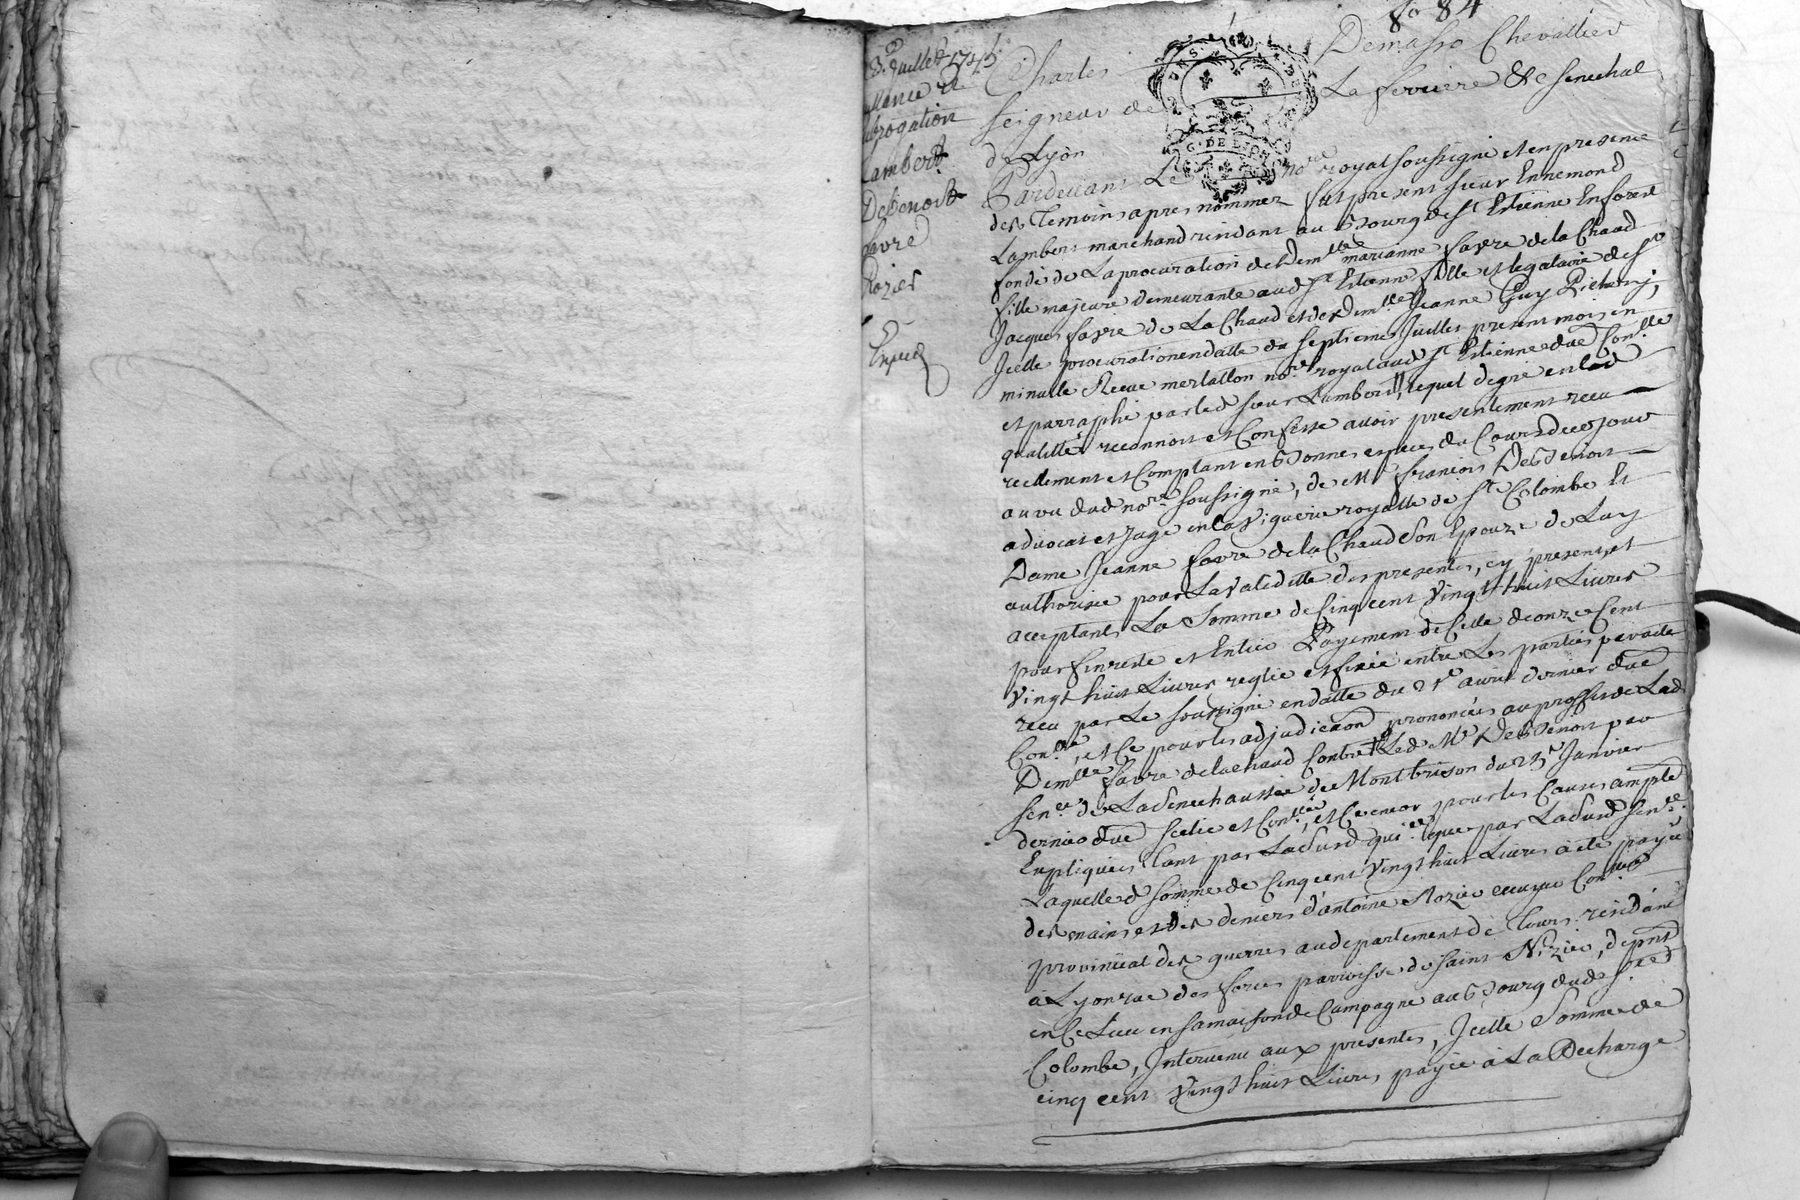 80 84
8e Juillet 1745
quittance et
subrogation
Lambert
DeBenoit
favre
Rozier
Expedié
Charles Demasso Chevallier
seigneur de La ferriere &c senechal
de Lyon
Pardevant Le nore royal soussigné et en presence
des temoins apres nommez fut present sieur Ennemond
Lambert marchand residant au Bourg de st Etienne En forest
fondé de La procuration de demlle marianne favre de la Chaud
fille majeure demeurante aud st Etienne fille et legataire de sr
Jacques favre de La Chaud et de demlle Jeanne Guy
Jcelle procuration en datte du septieme Juillet present mois en
minutte Receue mertallon nore royal aud st Etienne due Conlle
et parraphé par led sieur Lambert, lequel de gré en lad
qualitté reconnoit et Confesse avoir presentement receu
reellement et Comptant en Bonnes especes du Cours de ce jour
au vu dud nore soussigné, de Me francois DeBenoit
advocat et juge en la viguerie royalle de ste Colombe Et
Dame Jeanne favre de la Chaud son Epouze de Luy
authorisée pour La validitté des presentes, cy present et
acceptants La somme de Cinq cent vingt huit Livres
pour fin reste et Entier Payement de Celle de onze Cent
vingt huit Livres reglée et fixée entre Les parties par acte
receu par Le soussigné en datte du 21e avril dernier due
Conlle, et Ce pour les adjudicaon prononcées au proffit de Lad
Demlle favre de la chaud Contre Led Me DeBenoit par
sence de La senechaussée de Montbrison du 23e Janvier
dernier due scellée et Conllée, et Ce encor pour les Causes amplet
Expliquées tant par Ladsusd quit que par Ladsusd sence
Laquelle d somme de Cinq cent vingt huit Livres a été payée
des mains et des deniers d'antoine Rozier ecuyer Conre
provincial des guerres au departement de tours residant
à Lyon rue des forces parroisse de saint Nizier, de pnt
en Ce Lieu en sa maison de Campagne au Bourg dud ste
Colombe, Intervenu aux presentes, Jcelle somme de
cinq cent vingt huit Livres payée à La Decharge